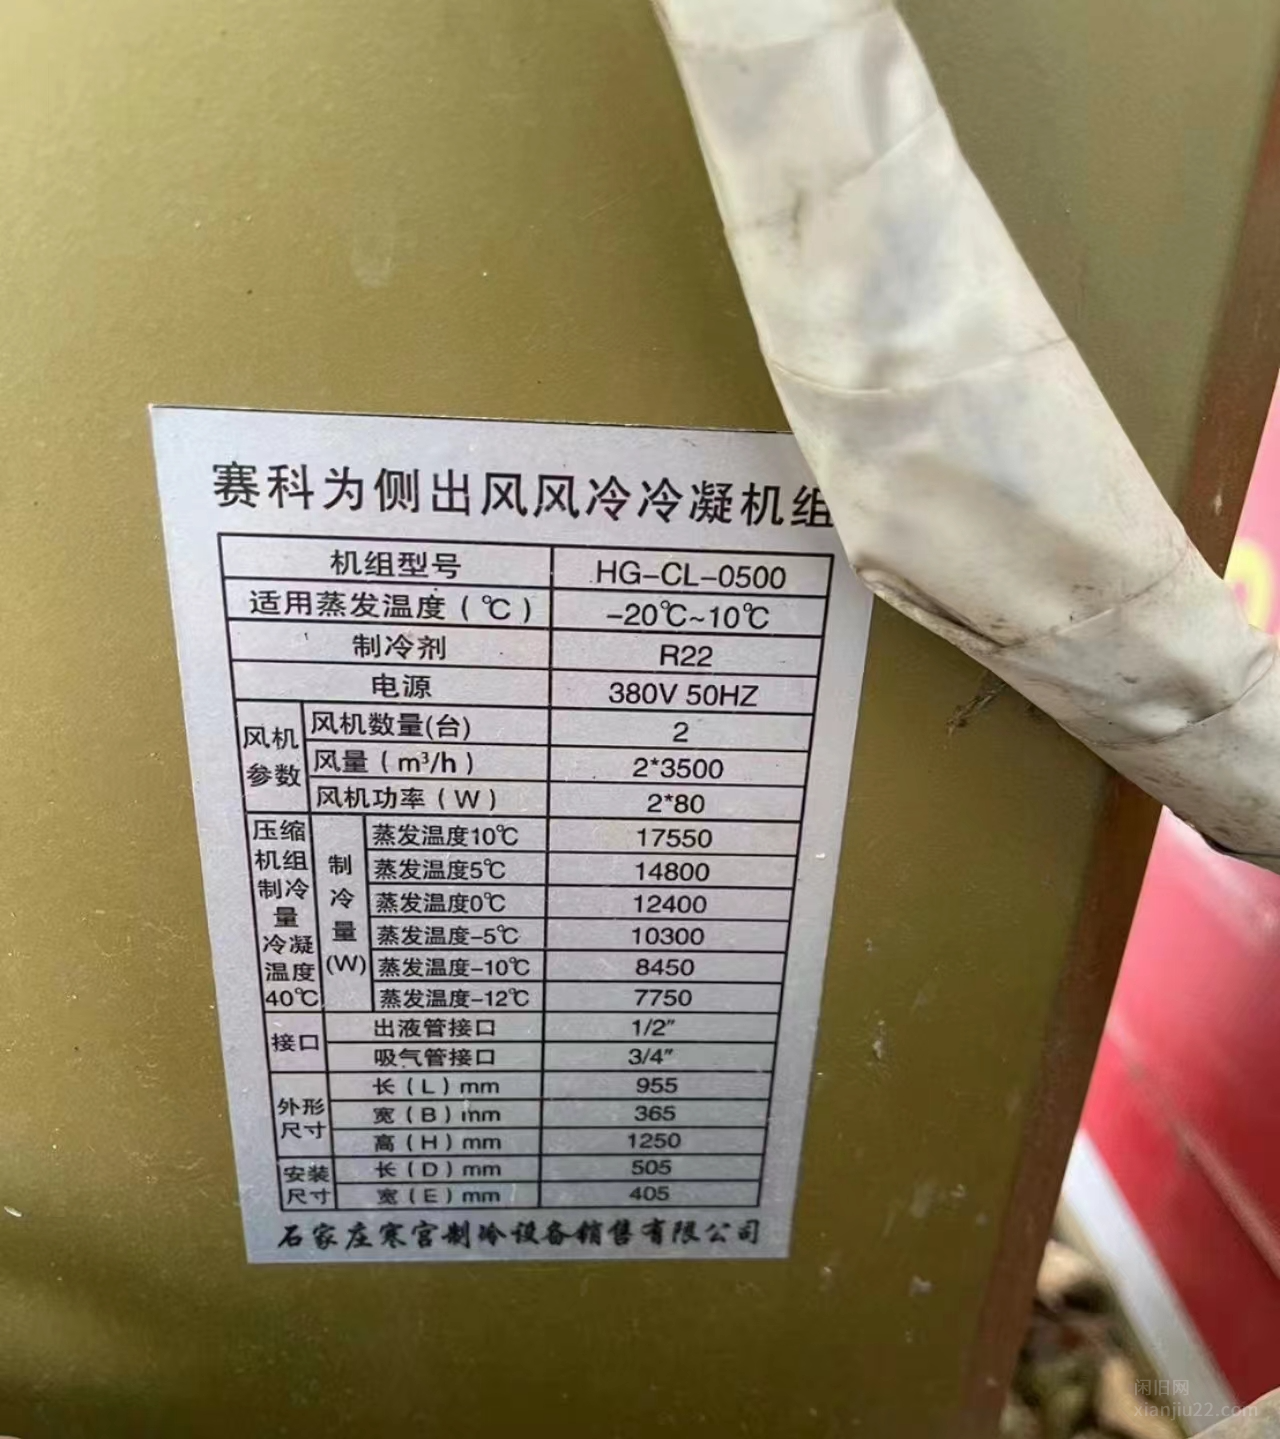 赛科为侧出风风冷冷凝机组
机组型号 HG-CL-0500
适用蒸发温度(℃) -20℃~10℃
制冷剂 R22
电源 380V 50HZ
风机参数 风机数量(台) 2
风量(m³/h) 2*3500
风机功率(W) 2*80
压缩机组制冷量冷凝温度40℃ 制冷量(W) 蒸发温度10℃ 17550
蒸发温度5℃ 14800
蒸发温度0℃ 12400
蒸发温度-5℃ 10300
蒸发温度-10℃ 8450
蒸发温度-12℃ 7750
接口 出液管接口 1/2"
吸气管接口 3/4"
外形尺寸 长(L)mm 955
宽(B)mm 365
高(H)mm 1250
安装尺寸 长(D)mm 505
宽(E)mm 405
石家庄寒宫制冷设备销售有限公司
闲旧网
xianjiu22.com